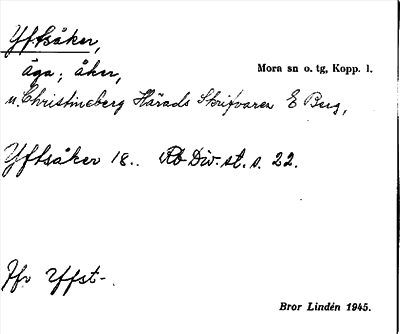 Yftsåker,
äga; åker,
Mora sn o. tg, Kopp. l.
u. Christineberg Härads Skrifvaren E Berg,
Yftsåker 18.. Rb Div. st. s. 22.
Jfr Yfst-.
Bror Lindén 1945.